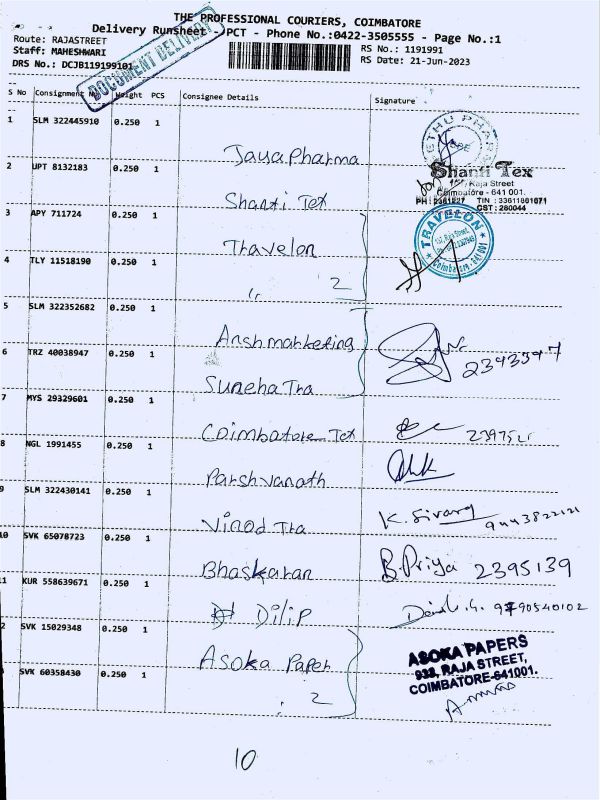 THE PROFESSIONAL COURIERS, COIMBATORE
Delivery Runsheet - PCT - Phone No.:0422-3505555 - Page No.:1
Route: RAJASTREET
RS No.: 1191991
Staff: MAHESHWARI
RS Date: 21-Jun-2023
DRS No.: DCJB119199101
DOCUMENT DELIVERY
S No Consignment Weight PCS Consignee Details Signature
1 SLM 322445910 0.250 1
Jaya Pharma
2 UPT 8132183 0.250 1
Shanti Tex
Shanti Tex
Raja Street
Coimbatore - 641 001.
PH: 2381827 TIN : 33611861071
CST: 280044
3 APY 711724 0.250 1
Travelon
TRAVELON
Coimbatore - 641 001
4 TLY 11518190 0.250 1
" 2
5 SLM 322352682 0.250 1
Ansh marketing
2393397
6 TRZ 40038947 0.250 1
Suneha Tra
7 MYS 29329601 0.250 1
Coimbatore Tex
8 NGL 1991455 0.250 1
Parshvanath
9 SLM 322430141 0.250 1
Vinod Tra
K. Sivaraj
9443822121
10 SVK 65078723 0.250 1
Bhaskaran
B. Priya 2395139
11 KUR 558639671 0.250 1
Dilip
9790540102
2 SVK 15029348 0.250 1
Asoka Paper
ASOKA PAPERS
938, RAJA STREET,
COIMBATORE-641001.
SVK 60358430 0.250 1
2
10